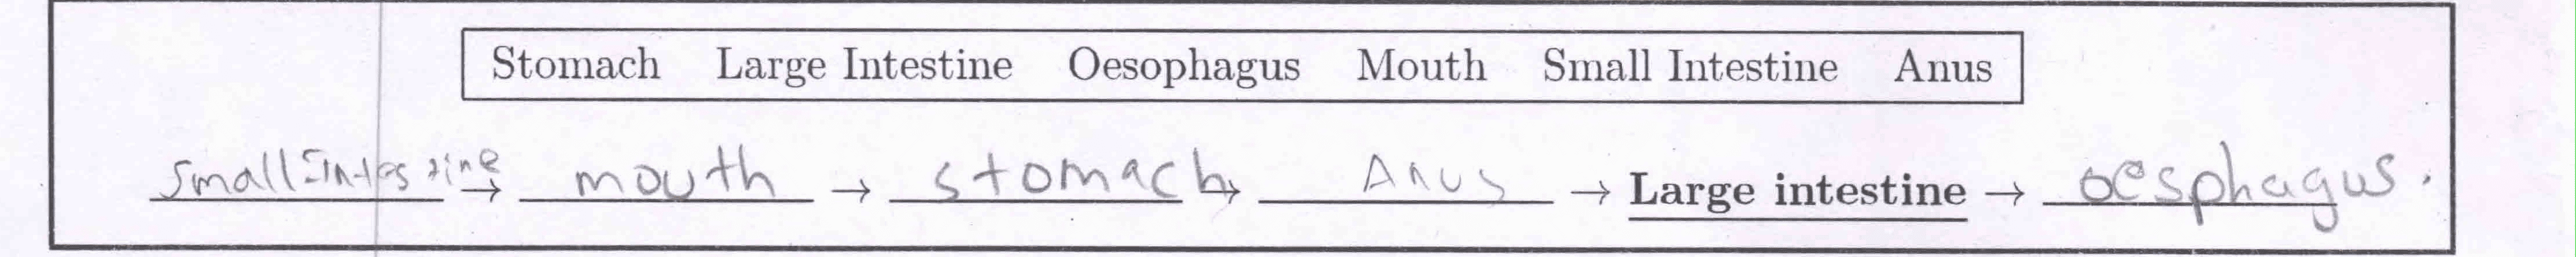 Stomach Large Intestine Oesophagus Mouth Small Intestine Anus
Small Intestine → mouth → stomach → Anus → Large intestine → oesphagus.